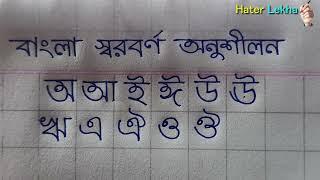 Hater Lekha
বাংলা স্বরবর্ণ অনুশীলন
অ আ ই ঈ উ ঊ
ঋ এ ঐ ও ঔ